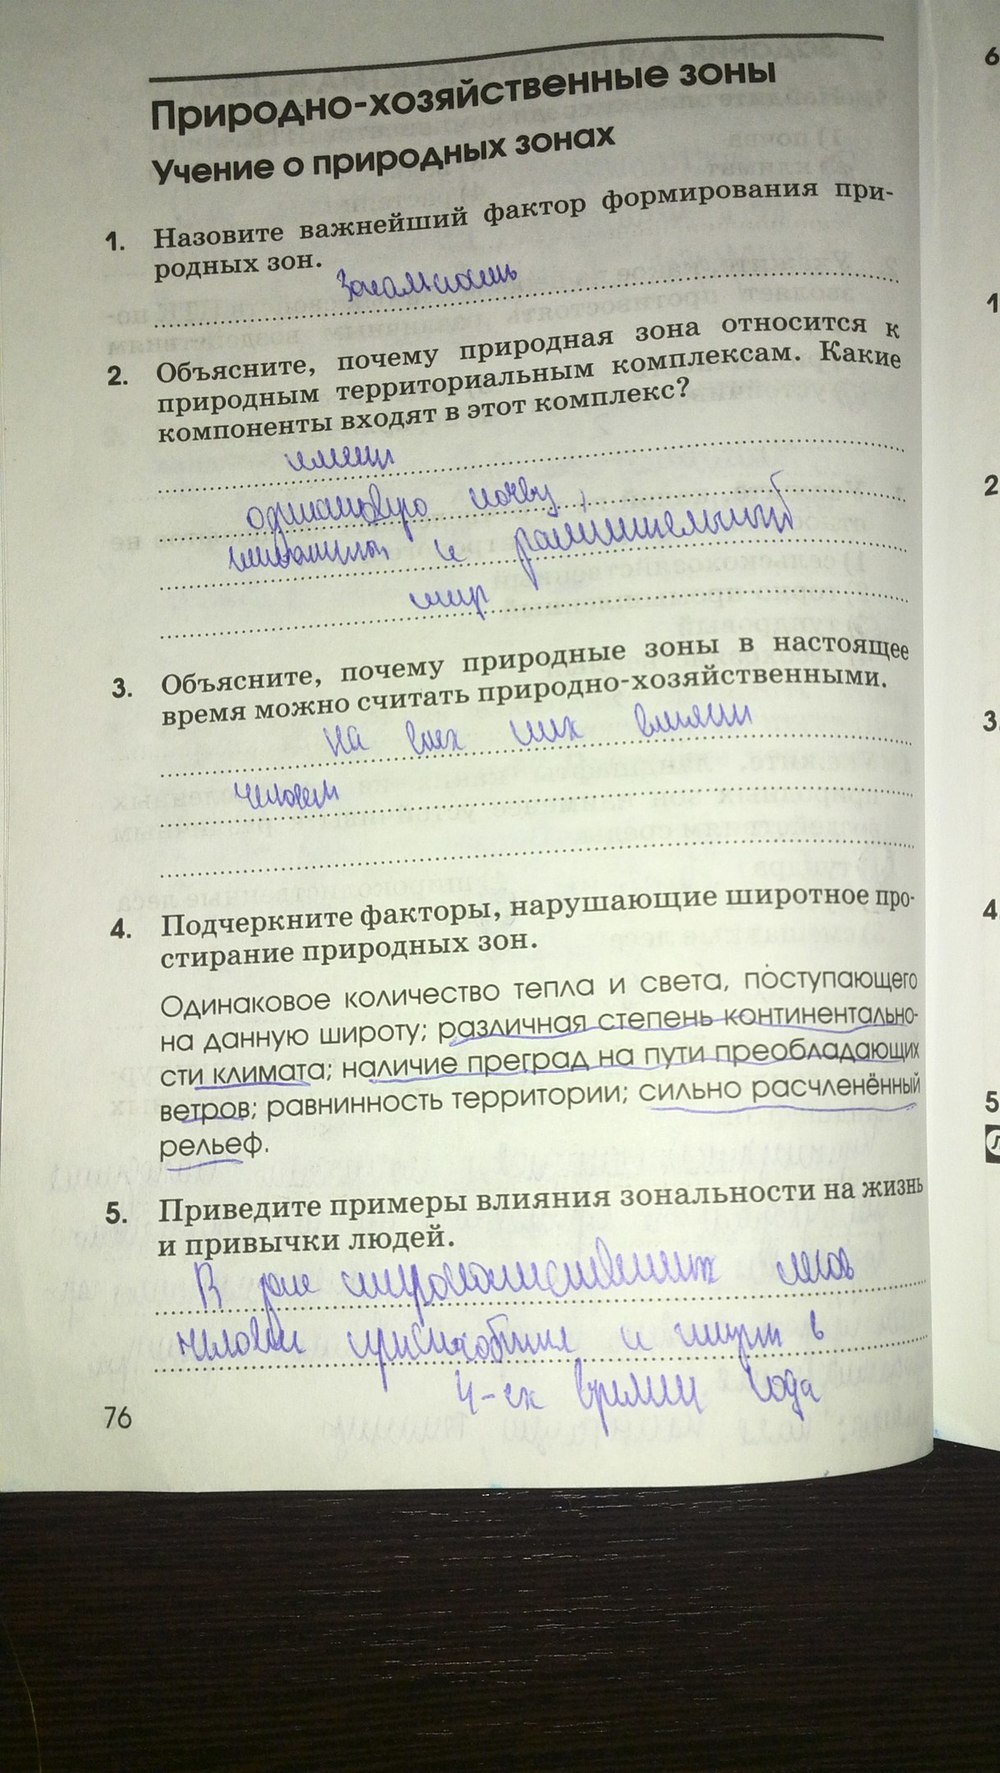 Природно-хозяйственные зоны
Учение о природных зонах
1. Назовите важнейший фактор формирования при-
родных зон.
Зональность
2. Объясните, почему природная зона относится к
природным территориальным комплексам. Какие
компоненты входят в этот комплекс?
имеет
одинаковую почву,
животный и растительный
мир
3. Объясните, почему природные зоны в настоящее
время можно считать природно-хозяйственными.
На всех них влияет
человек
4. Подчеркните факторы, нарушающие широтное про-
стирание природных зон.
Одинаковое количество тепла и света, поступающего
на данную широту; различная степень континентально-
сти климата; наличие преград на пути преобладающих
ветров; равнинность территории; сильно расчленённый
рельеф.
5. Приведите примеры влияния зональности на жизнь
и привычки людей.
В зоне широколиственных лесов
человек приспособился и живёт в
4-ех времени года
76
6
1
2
3.
4
5